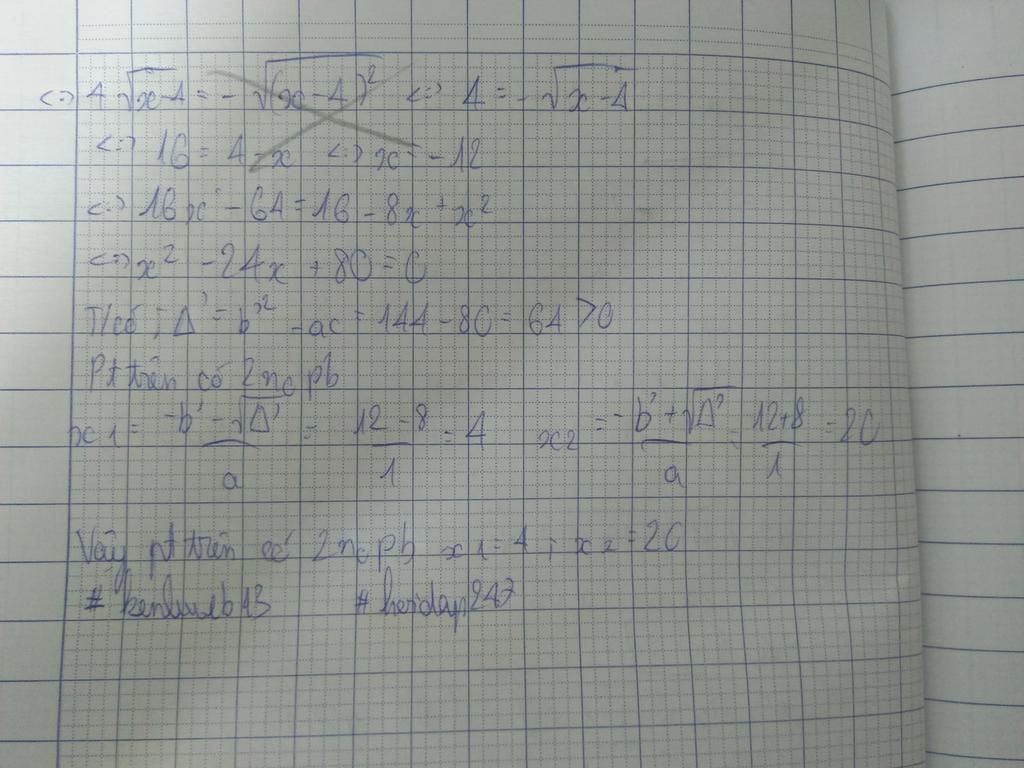 <=> 4 √x-4 = - √(x-4)² <=> 4 = - √x-4
<=> 16 = 4 - x <=> x = - 12
<=> 16x - 64 = 16 - 8x + x²
<=> x² - 24x + 80 = 0
T/có : Δ' = b'² - ac = 144 - 80 = 64 > 0
Pt trên có 2 no pb
x1 = -b' - √Δ' / a = 12 - 8 / 1 = 4 x2 = -b' + √Δ' / a = 12+8 / 1 = 20
Vậy pt trên có 2 no pb x1 = 4 ; x2 = 20
#hoidap247